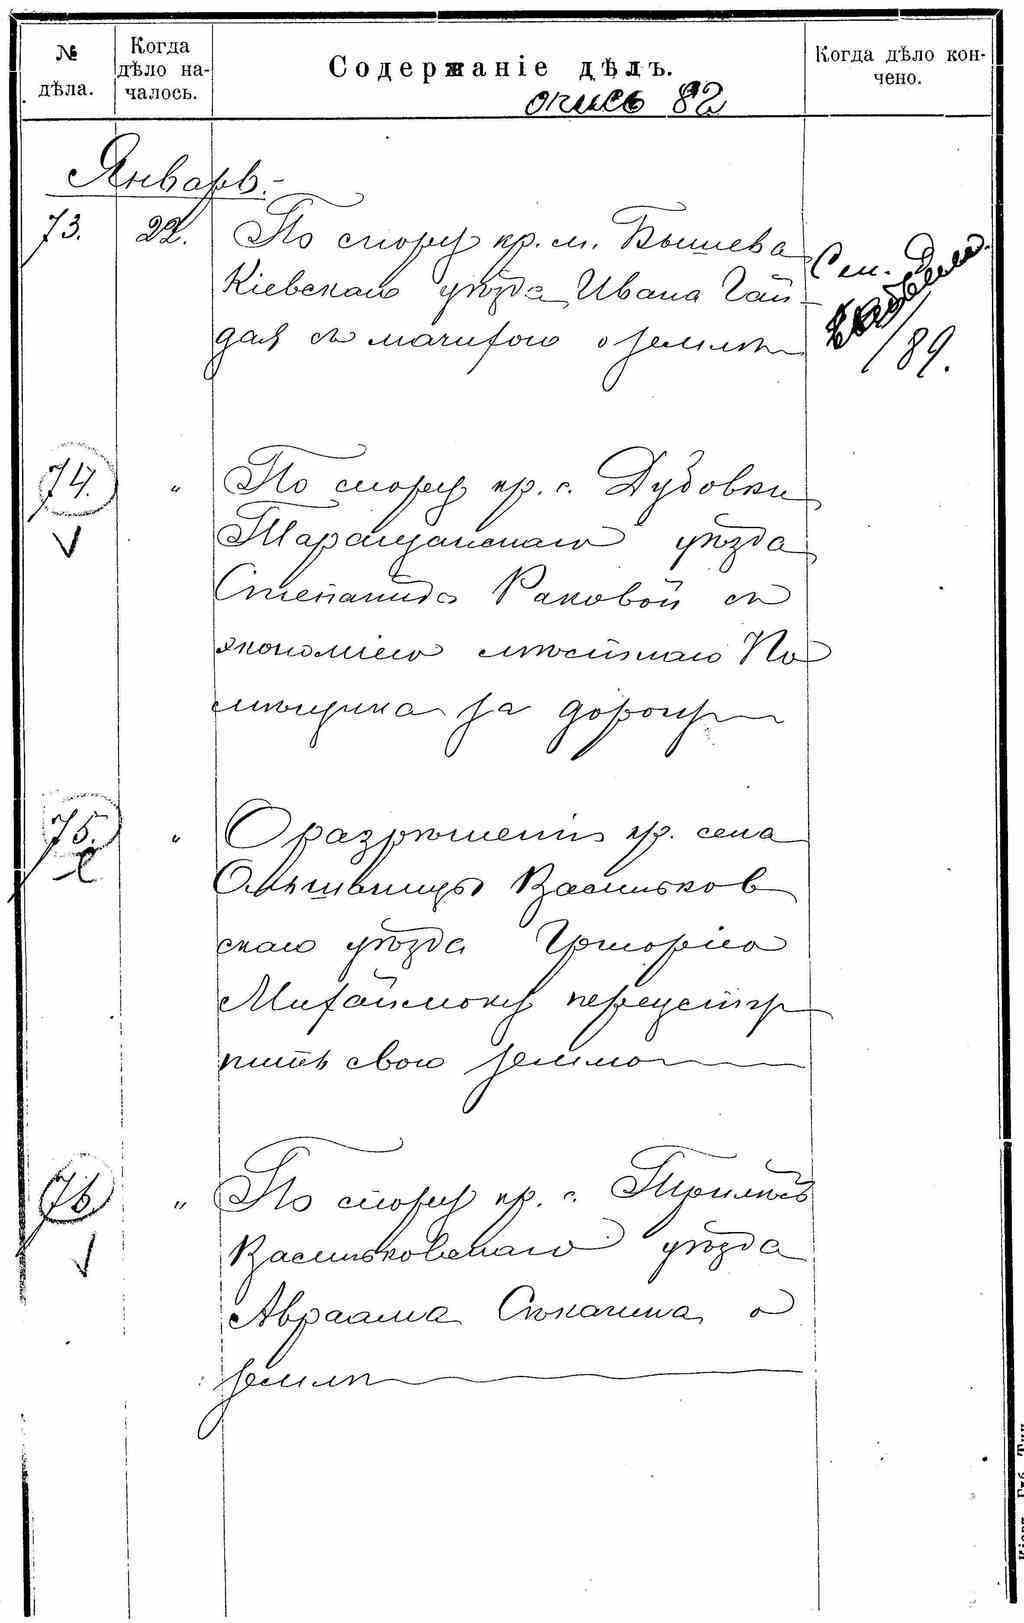 № дѣла.
Когда дѣло на-
чалось.
Содержаніе дѣлъ.
Когда дѣло кон-
чено.
опись 82
Январь.-
73. 22. По спору кр. м. Бышева
Кіевскаго уѣзда Ивана Гай-
дая съ мачихою о землѣ
/89.
74. " По спору кр. с. Дубовки
Таращанскаго уѣзда
Степаниды Раковой съ
экономіею мѣстнаго По
мѣщика за дорогу
75. " О разрѣшеніи кр. села
Ольшаницы Васильков
скаго уѣзда Григорію
Михайлюку переусту
пить свою землю
76. " По спору кр. с. Трилѣсъ
Васильковскаго уѣзда
Авраама о
землѣ